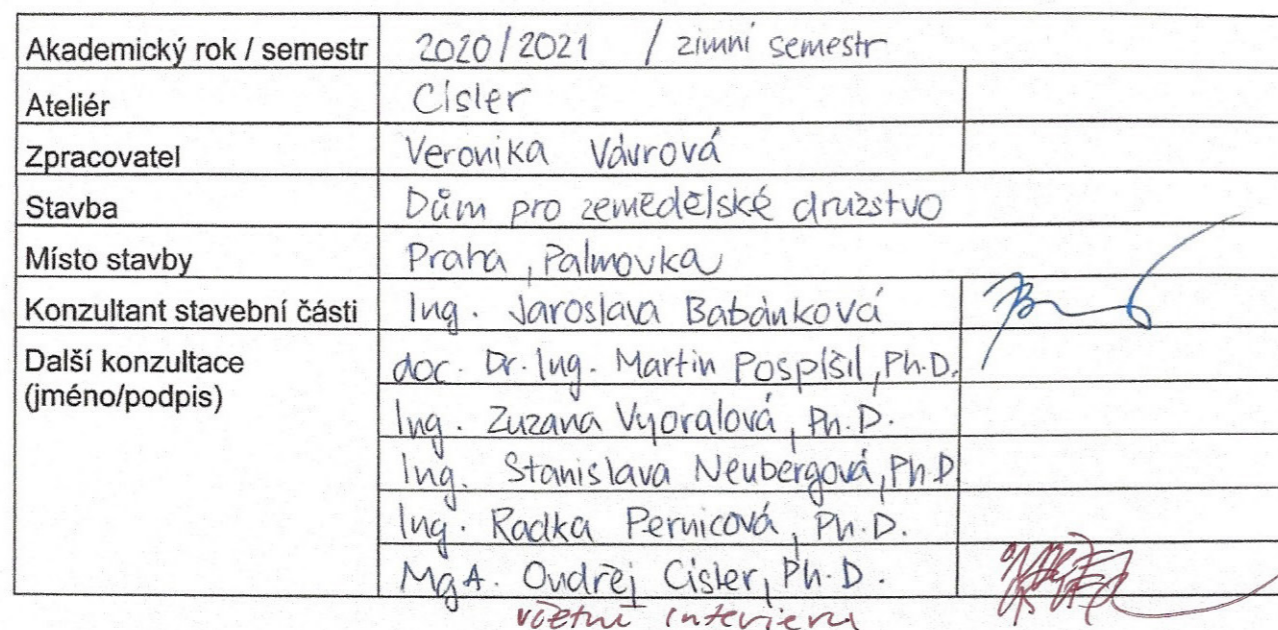 Akademický rok / semestr 2020/2021 / zimní semestr
Ateliér Císler
Zpracovatel Veronika Vávrová
Stavba Dům pro zemědělské družstvo
Místo stavby Praha, Palmovka
Konzultant stavební části Ing. Jaroslava Babánková
Další konzultace doc. Dr. Ing. Martin Pospíšil, Ph.D.
(jméno/podpis)
Ing. Zuzana Vyoralová, Ph.D.
Ing. Stanislava Neubergová, Ph.D
Ing. Radka Pernicová, Ph.D.
MgA. Ondřej Císler, Ph.D.
včetně interieru